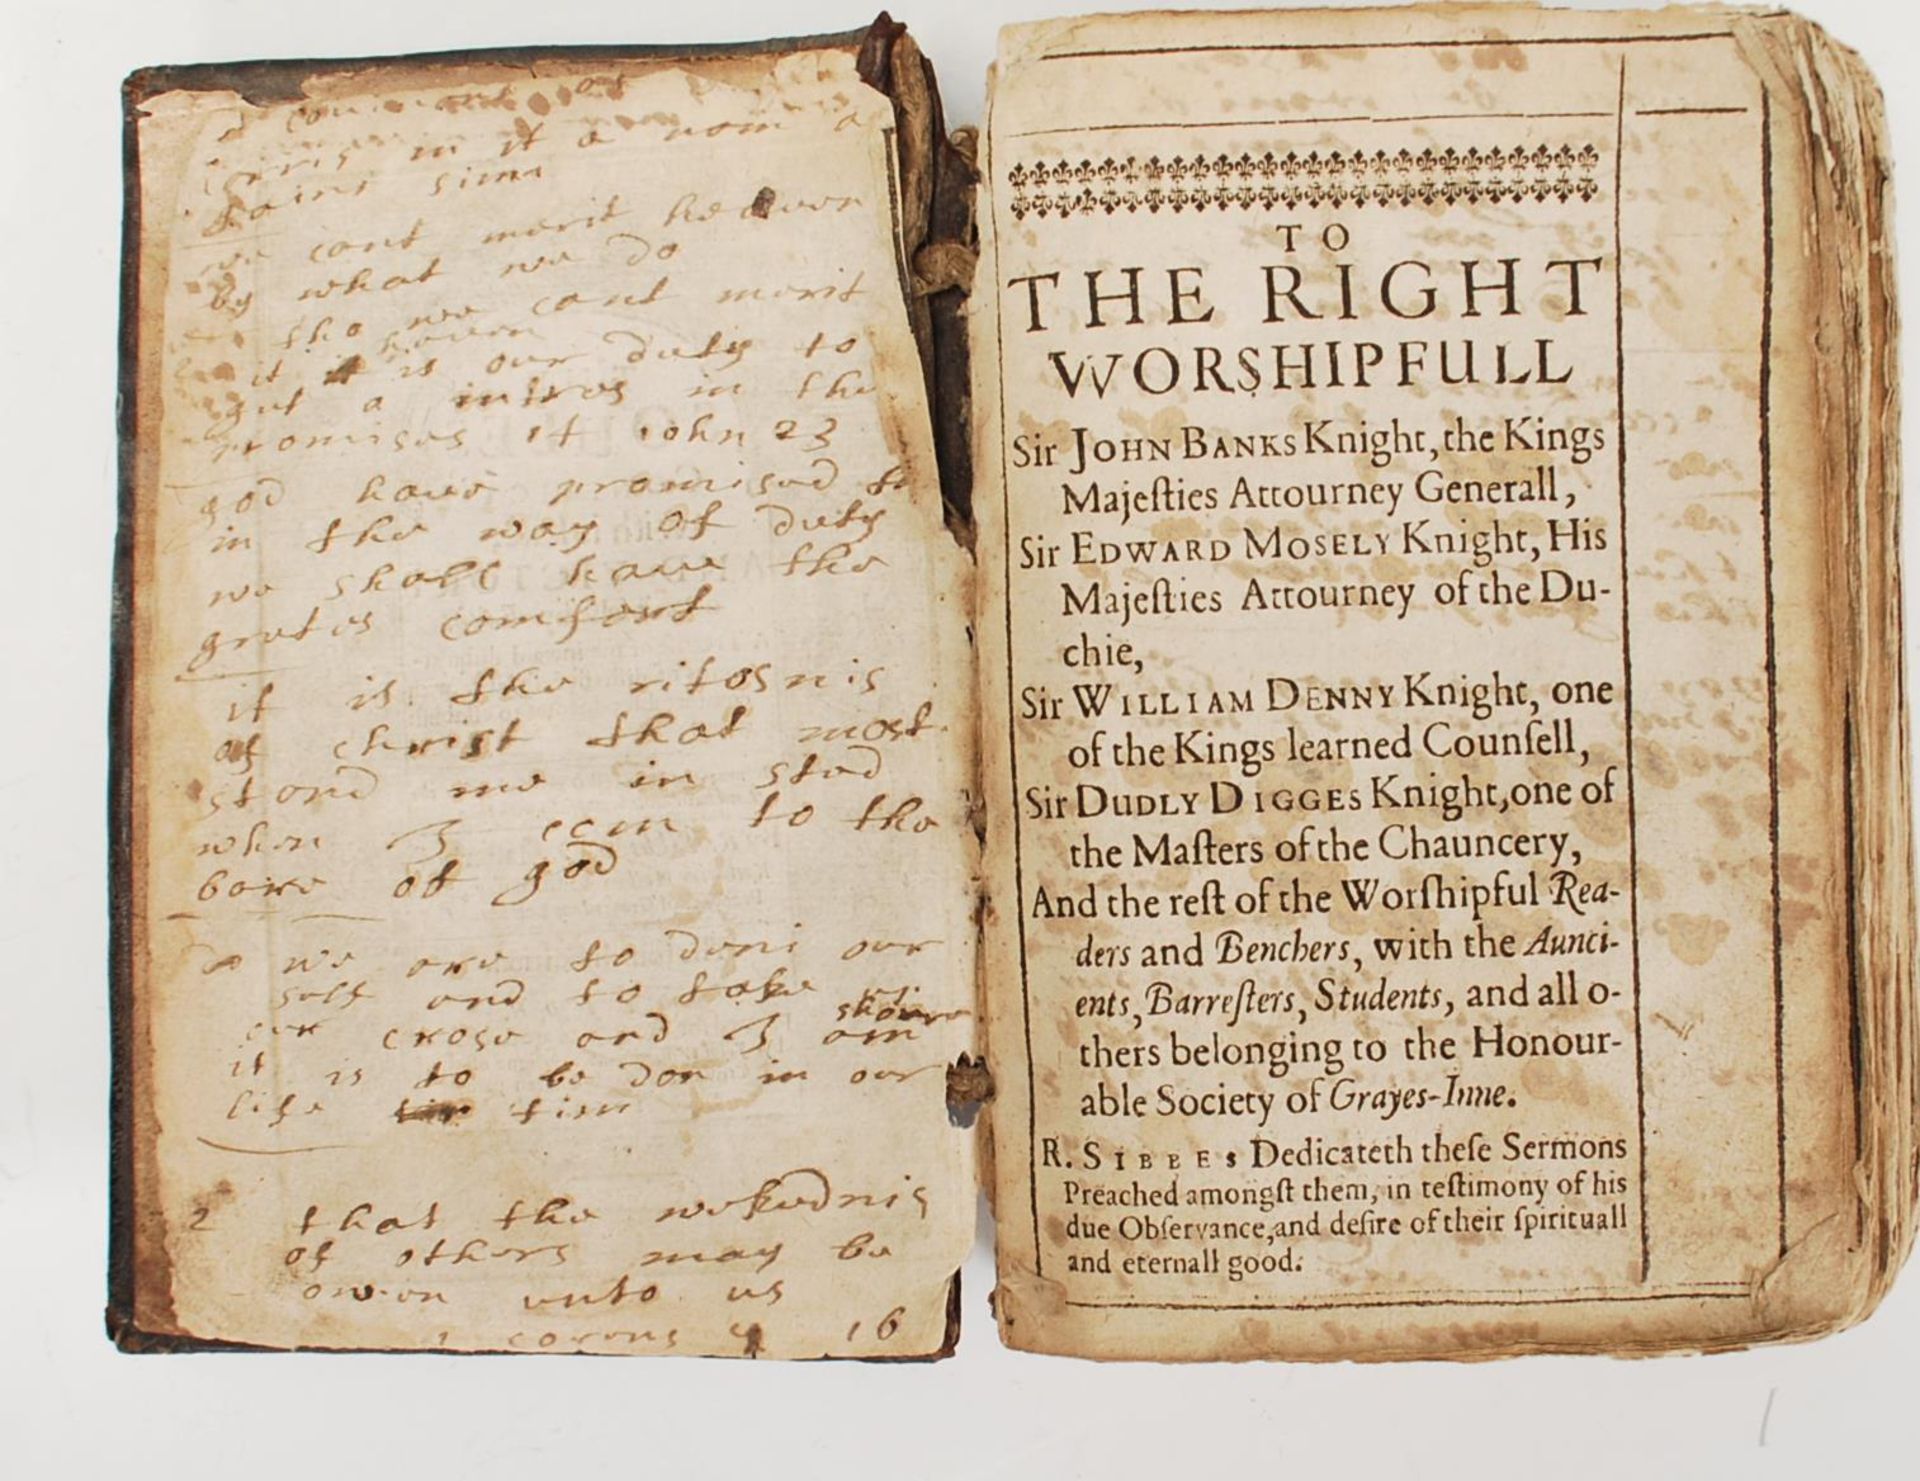 in it a nom a
we cant merit heaven
by what we do
tho we cant merit
heaven
it it is our duty to
get a intres in the
promises 14 iohn 23
god have promised
in the way of duty
we shall have the
grates comfort
it is the ritosnis
of christ that most
stand me in sted
when I com to the
bare of god
we are to deni our
self and to take up
our crose and I am
shouer
it is to be don in our
life tim
2 that the wekednis
of others may be
owen unto us
1 corens 4 16
TO
THE RIGHT
WORSHIPFULL
Sir JOHN BANKS Knight, the Kings
Majeſties Attourney Generall,
Sir EDWARD MOSELY Knight, His
Majeſties Attourney of the Du-
chie,
Sir WILLIAM DENNY Knight, one
of the Kings learned Counſell,
Sir DUDLY DIGGES Knight, one of
the Maſters of the Chauncery,
And the reſt of the Worſhipful Rea-
ders and Benchers, with the Aunci-
ents, Barreſters, Students, and all o-
thers belonging to the Honour-
able Society of Grayes-Inne.
R. SIBBES Dedicateth theſe Sermons
Preached amongſt them, in teſtimony of his
due Obſervance, and deſire of their ſpirituall
and eternall good.